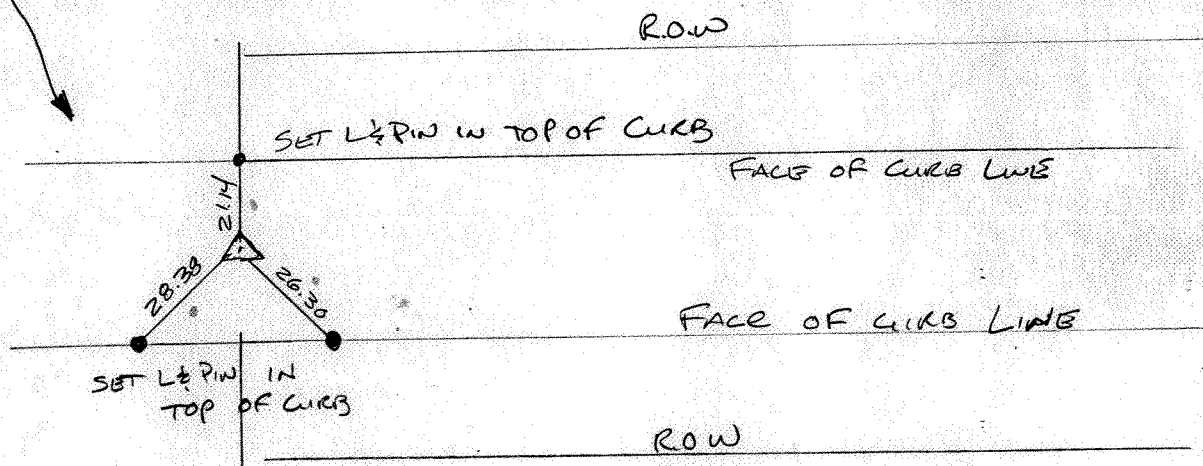 R.O.W
SET L& PIN IN TOP OF CURB
FACE OF CURB LINE
21.14
28.39
26.30
FACE OF CURB LINE
SET L& PIN IN
TOP OF CURB
ROW